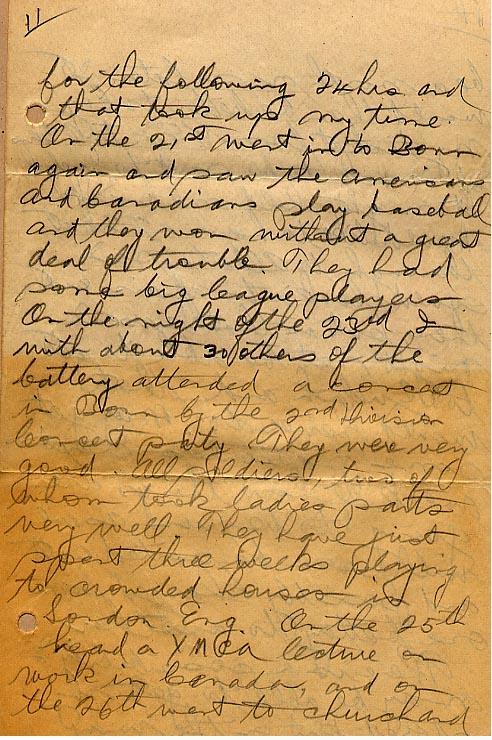 11
for the following 24hrs and
that took up my time.
On the 21st went in to Bonn
again and saw the Americans
and Canadians play baseball
and they won without a great
deal of trouble They had
some big league players
On the night of the 23rd I
with about 30 others of the
battery attended a concert
in Bonn by the 2nd Division
Concert party They were very
good. All soldiers, two of
whom took ladies parts
very well They have just
spent three weeks playing
to crowded houses in
London Eng. On the 25th
heard a YMCA lecture on
work in Canada, and on
the 26th went to church and